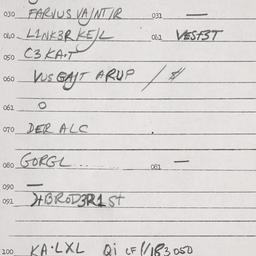 030 FARVUS VA/NT/R 031 —
040 L1NK3R KE/L 061 VEST3T
050 C3 KA.T
060 VUS GAJT ARUP / #
061 O
070 DER ALC
080 GORGL .. 081 —
090 —
091 BROD3R1 St
100 KA·LXL Qi CF 1/183 050